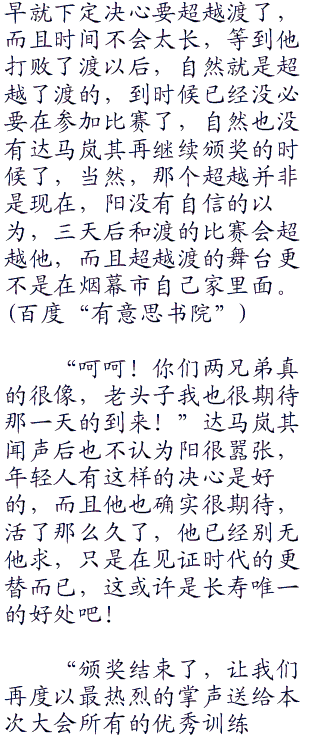 早就下定决心要超越渡了，
而且时间不会太长，等到他
打败了渡以后，自然就是超
越了渡的，到时候已经没必
要在参加比赛了，自然也没
有达马岚其再继续颁奖的时
候了，当然，那个超越并非
是现在，阳没有自信的以
为，三天后和渡的比赛会超
越他，而且超越渡的舞台更
不是在烟幕市自己家里面。
(百度“有意思书院”)
“呵呵！你们两兄弟真
的很像，老头子我也很期待
那一天的到来！”达马岚其
闻声后也不认为阳很嚣张，
年轻人有这样的决心是好
的，而且他也确实很期待，
活了那么久了，他已经别无
他求，只是在见证时代的更
替而已，这或许是长寿唯一
的好处吧！
“颁奖结束了，让我们
再度以最热烈的掌声送给本
次大会所有的优秀训练